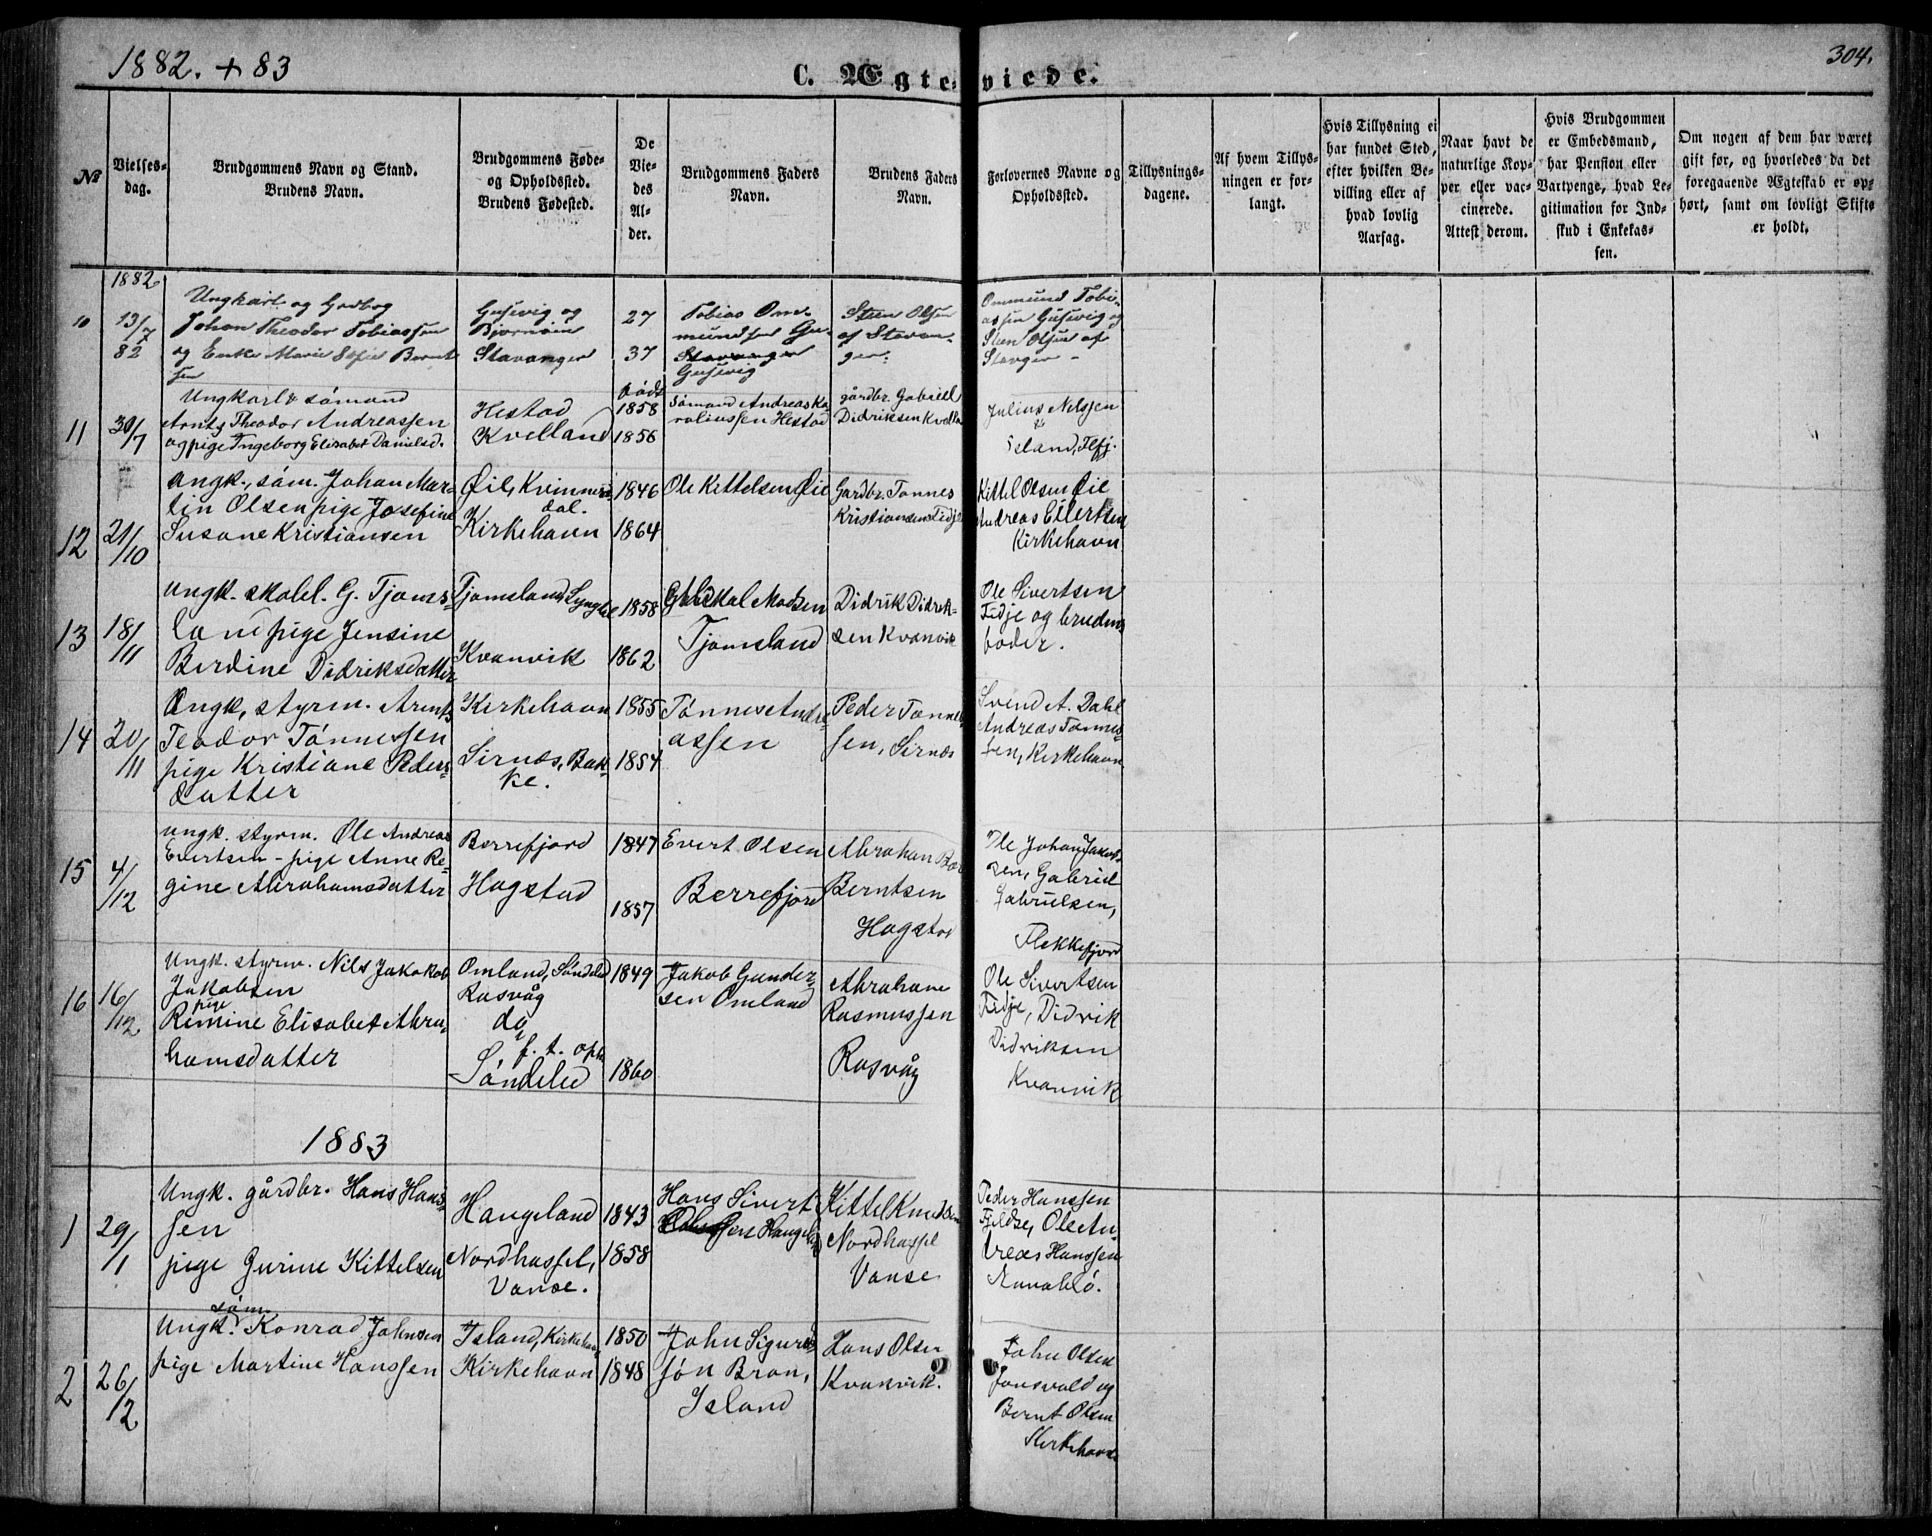 1882. + 83
304.
C. Ægteviede.
No
Vielses-
dag.
Brudgommens Navn og Stand.
Brudens Navn.
Brudgommens Føde-
og Opholdssted.
Brudens Fødested.
De
Vie-
des
Al-
der.
Brudgommens Faders
Navn.
Brudens Faders
Navn.
Forlovernes Navne og
Opholdssted.
Tillysnings-
dagene.
Af hvem Tillys-
ningen er for-
langt.
Hvis Tillysning ei
har fundet Sted,
efter hvilken Be-
villing eller af
hvad lovlig
Aarsag.
Naar havt de
naturlige Kop-
per eller vac-
cinerede.
Attest derom.
Hvis Brudgommen
er Embedsmand,
har Pension eller
Vartpenge, hvad Le-
gitimation for Ind-
skud i Enkekas-
sen.
Om nogen af dem har været
gift før, og hvorledes da det
foregaaende Ægteskab er op-
hørt, samt om lovligt Skifte
er holdt.
1882
10
13/7
82
Ungkarl og Gaardbrg
Johan Theodor Tobiassen
og Enke Marie Sofie Bernt
sen
Gusevig og
Bjørnøen
Stavanger
27
37
Tobias Om-
mundsen Gu-
Stavanger
Gusevig
Steen Olsen
af Stavan-
ger.
Ommund Tobi-
assen Gusevig og
Steen Olsen af
Stavger -
11
30/7
Ungkarl & sømand
Arnts Theodor Andreassen
og pige Ingeborg Elisabet Danielsd.
Hestad
Kvelland
født
1858
1856
Sømand Andreas Ka-
roliussen Hestad
gårdbr. Gabriel
Didriksen Kvella
Julius Nilssen
Island, Flfj.
12
21/10
Ungk., søm. Johan Mar-
tin Olsen pige Josefine
Susane Kristiansen
Øie, Kvinnes-
dal.
Kirkehavn
1846
1864
Ole Kittelsen Øie
Gardbr. Tønnes
Kristiansen Fidje
Kittel Olsen Øie
Andreas Ellertsen
Kirkehavn
13
18/11
Ungk. skolel. G. Tjoms-
land pige Jensine
Berdine Didriksdatter
Tjomsland, Lyngdal
Kvanvik
1858
1862
Madsen
Tjomsland
Didrik Didrik-
sen Kvanvik
Ole Sivertsen
Fidje og brudens
bøder.
14
20/11
Ungk, styrm. Arents
Teodor Tønnessen
pige Kristiane Peders-
datter
Kirkehavn
Sirnæs, Bak-
ke.
1855
1854
Tønnes Andre-
assen
Peder Tønnes-
sen, Sirnæs
Svend A. Dahl
Andreas Tønnes-
sen, Kirkehavn
15
4/12
Ungk. styrm. Ole Andreas
Evertsen - pige Anne Re-
gine Abrahamsdatter
Berrefjord
Hagstad
1847
1857
Evert Olsen
Berrefjord
Abrahan
Berntsen
Hagstad
Ole Johan Jakob-
sen, Gabriel
Gabrielsen,
Flekkefjord
16
16/12
Ungk. styrm. Nils Jakokob
Jakobsen
pige
Rimine Elisabet Abra-
hamsdatter
Omland, Søndeled
Rasvåg
do,
f. t. oph.
Søndeled
1849
1860
Jakob Gunder-
sen Omland
Abrahane
Rasmussen
Rasvåg
Ole Sivertsen
Fidje, Didrik
Didriksen
Kvanvik
1883
1
29/1
Ungk. gårdbr. Hans Hans-
sen
pige Gurine Kittelsen
Haugeland
Nordhassel,
Vanse.
1843
1858
Hans Sivert
sen Haugeland
Kittel Knudsen
Nordhassel
Vanse
Peder Hanssen
Fjeldse, Ole An-
dreas Hanssen
Annabø.
2
26/2
søm.
Ungk. Konrad Johnsen
pige Martine Hanssen
Island, Kirkehavn
Kirkehavn
1850
1848
John Sigurds-
søn Bron,
Island
Hans Olsen
Kvanvik.
John Olsen
Jonsvold og
Bernt Olsen
Kirkehavn